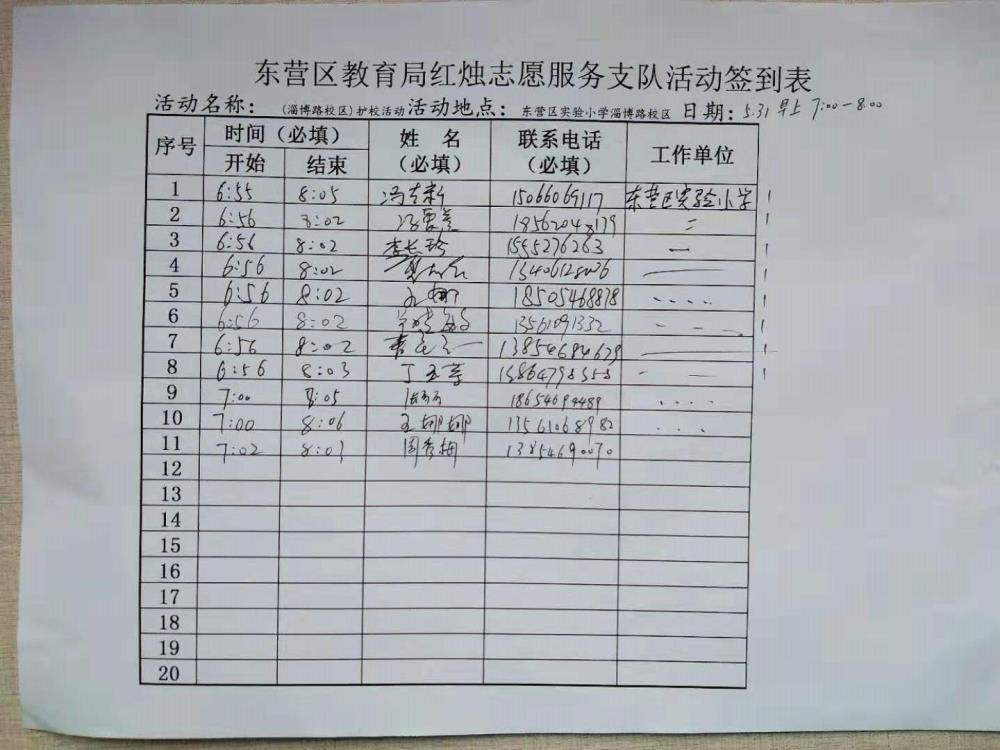 东营区教育局红烛志愿服务支队活动签到表
活动名称：（淄博路校区）护校活动 活动地点：东营区实验小学淄博路校区 日期：5.31 早上 7:00-8:00
序号 时间（必填） 姓 名（必填） 联系电话（必填） 工作单位
开始 结束
1 6:55 8:05 15066069117 东营区实验小学
2 6:56 8:02 18562048179
3 6:56 8:02 李长玲 1555276263
4 6:56 8:02
5 6:56 8:02 18505468878
6 6:56 8:02 13561091332
7 6:56 8:02 13854684679
8 6:56 8:03 丁玉章
9 7:00 8:05
10 7:00 8:06 王娜娜 13561068982
11 7:02 8:03 周秀梅 13854690070
12
13
14
15
16
17
18
19
20